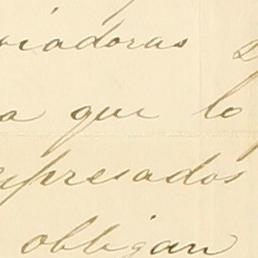 viadoras
a que lo
expresados
obligan